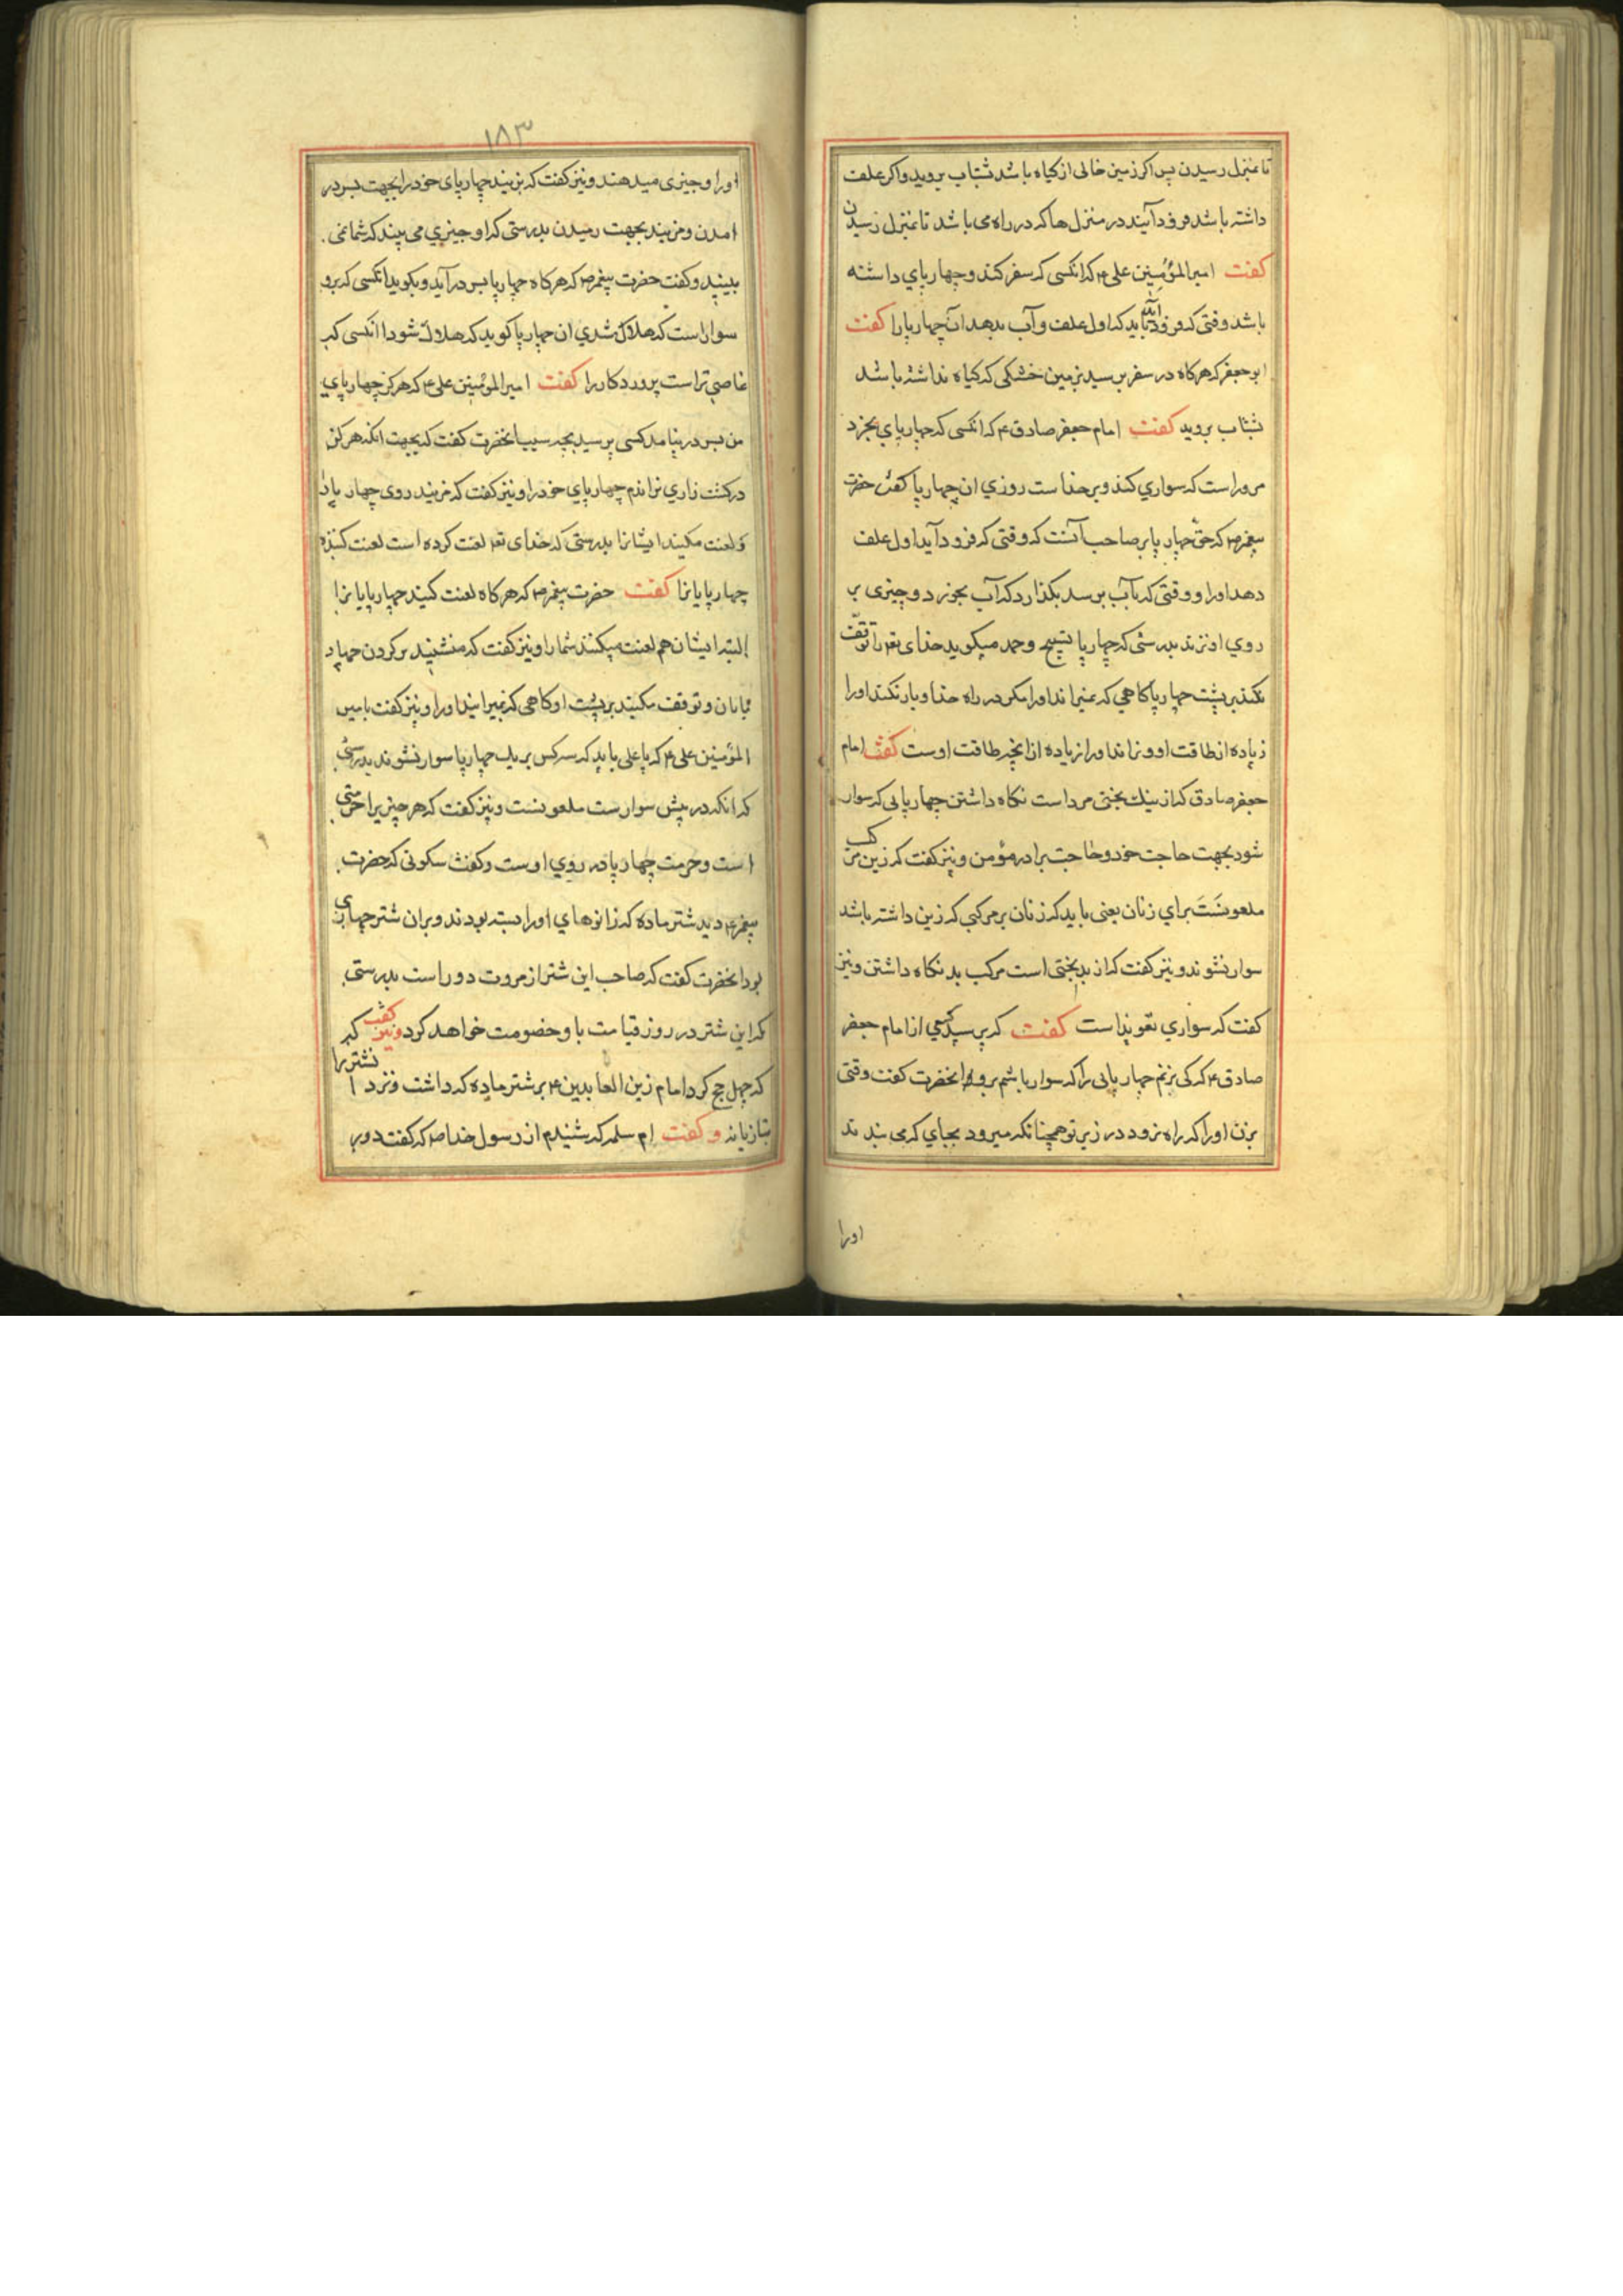 تا بمنزل رسیدن پس اکر زمین خالی از کیاه باشد شتاب بروید واکر علف
داشته باشد فرود آیید در منزل ها که در راه می باشد تا بمنزل رسیدن
کفت امیرالمؤمنین علی ع که انکسی که سفر کند وچهار پاي داشته
باشد وقتی که فرود آید باید که اول علف وآب بدهد آن چهار پا را کفت
ابو جعفر که هرکاه در سفر برسید بزمین خشکی که کیاه نداشته باشد
شتاب بروید کفت امام جعفر صادق ع که انکسی که چهار پاي بخرد
مر وراست که سواري کند وبر خداست روزي ان چهار پا کفت حضرت
پیغمبر ص که حقّ چهار پا بر صاحب آنست که وقتی که فرود آید اول علف
دهد اورا ووقتی که بآب برسد بکذارد که آب بخورد وچیزی بر
روي او نزند بدرستی که چهار پا تسبیح وحمد میکوید خدای تعه را توقف
نکند بر پشت چهار پا کاهي که نمیراند اورا مکر در راه خدا وبار نکند اورا
زیاده از طاقت او ونراند اورا زیاده از انچه طاقت اوست کفت امام
جعفر صادق که از نیك بختی مرد است نکاه داشتن چهار پایی که سوار
شود بجهت حاجت خود وحاجت برادر مؤمن ونیز کفت که زین مرکب
ملعونست براي زنان یعنی باید که زنان بر مرکبی که زین داشته باشد
سوار نشوند ونیز کفت که از بدبختی است مرکب بد نکاه داشتن ونیز
کفت که سواري تعویذ است کفت که پرسید کسي از امام جعفر
صادق ع که کی بزنم چهار پایی را که سوار باشم برو انحضرت کفت وقتی
بزن اورا که راه نرود در زیر تو همچنانکه میرود بجاي که می بندند
اورا
۱۸۳
اورا وچیزی میدهند ونیز کفت که بزنید چهار پای خود را بجهت بسر در
امدن ومزنید بجهت رمیدن بدرستی که او چیزي می بیند که شما نمی
بینید وکفت حضرت پیغمبر ص که هرکاه چهار پا بسر درآید وبکوید انکسی که برو
سوار است که هلاك شدي ان چهار پا کوید که هلاك شود انکسی که
عاصي تراست پروردکار را کفت امیرالمؤمنین علی ع که هرکز چهار پاي
من بسر در نیامد کسی پرسید بچه سبب انحضرت کفت که بجهت انکه هرکز
در کشت زاري نراندم چهار پاي خود را ونیز کفت که مزنید روی چهار پا را
ولعنت مکنید ایشانرا بدرستی که خدای تعه لعنت کرده است لعنت کننده
چهار پایانرا کفت حضرت پیغمبر ص که هرکاه لعنت کنید چهار پایانرا
البته ایشان هم لعنت میکنند شما را ونیز کفت که منشینید بر کردن چهار
پایان وتوقف مکنید بر پشت او کاهی که نمیرانید اورا ونیز کفت بامیر
المؤمنین علی ع که یا علی باید که سه کس بر یك چهار پا سوار نشوند بدرستی
که انکه در پیش سوارست ملعونست ونیز کفت که هر چیزیرا حرمتی
است وحرمت چهار پا در روي اوست وکفت سکونی که حضرت
پیغمبر ع دید شتر ماده که زانوهاي اورا بسته بودند وبران شتر جهازي
بود انحضرت کفت که صاحب این شتر از مروت دور است بدرستی
که این شتر در روز قیامت با و خصومت خواهد کرد ونیز کفت که
که چهل حج کرد امام زین العابدین ع بر شتر ماده که داشت ونزد ا
نشتر را
بتازیانه وکفت ام سلمه که شنیدم از رسول خدا ص که کفت دور